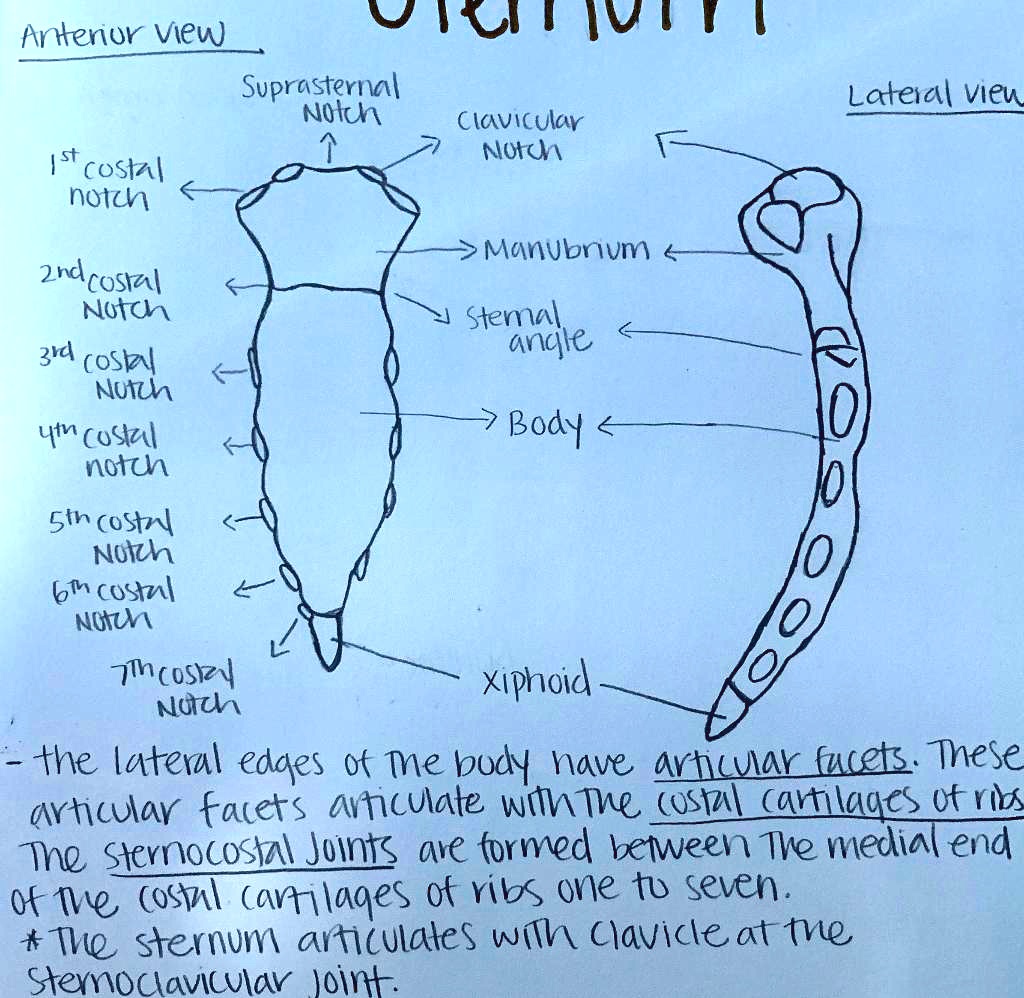 Sternum
Anterior View
Lateral view
Suprasternal
Notch
Clavicular
Notch
1st costal
notch
Manubrium
2nd costal
Notch
Sternal
angle
3rd costal
Notch
Body
4th costal
notch
5th costal
Notch
6th costal
Notch
7th costal
Notch
Xiphoid
- the lateral edges of the body have articular facets. These
articular facets articulate with the costal cartilages of ribs
The sternocostal Joints are formed between The medial end
of the costal cartilages of ribs one to seven.
* The sternum articulates with clavicle at the
Sternoclavicular Joint.